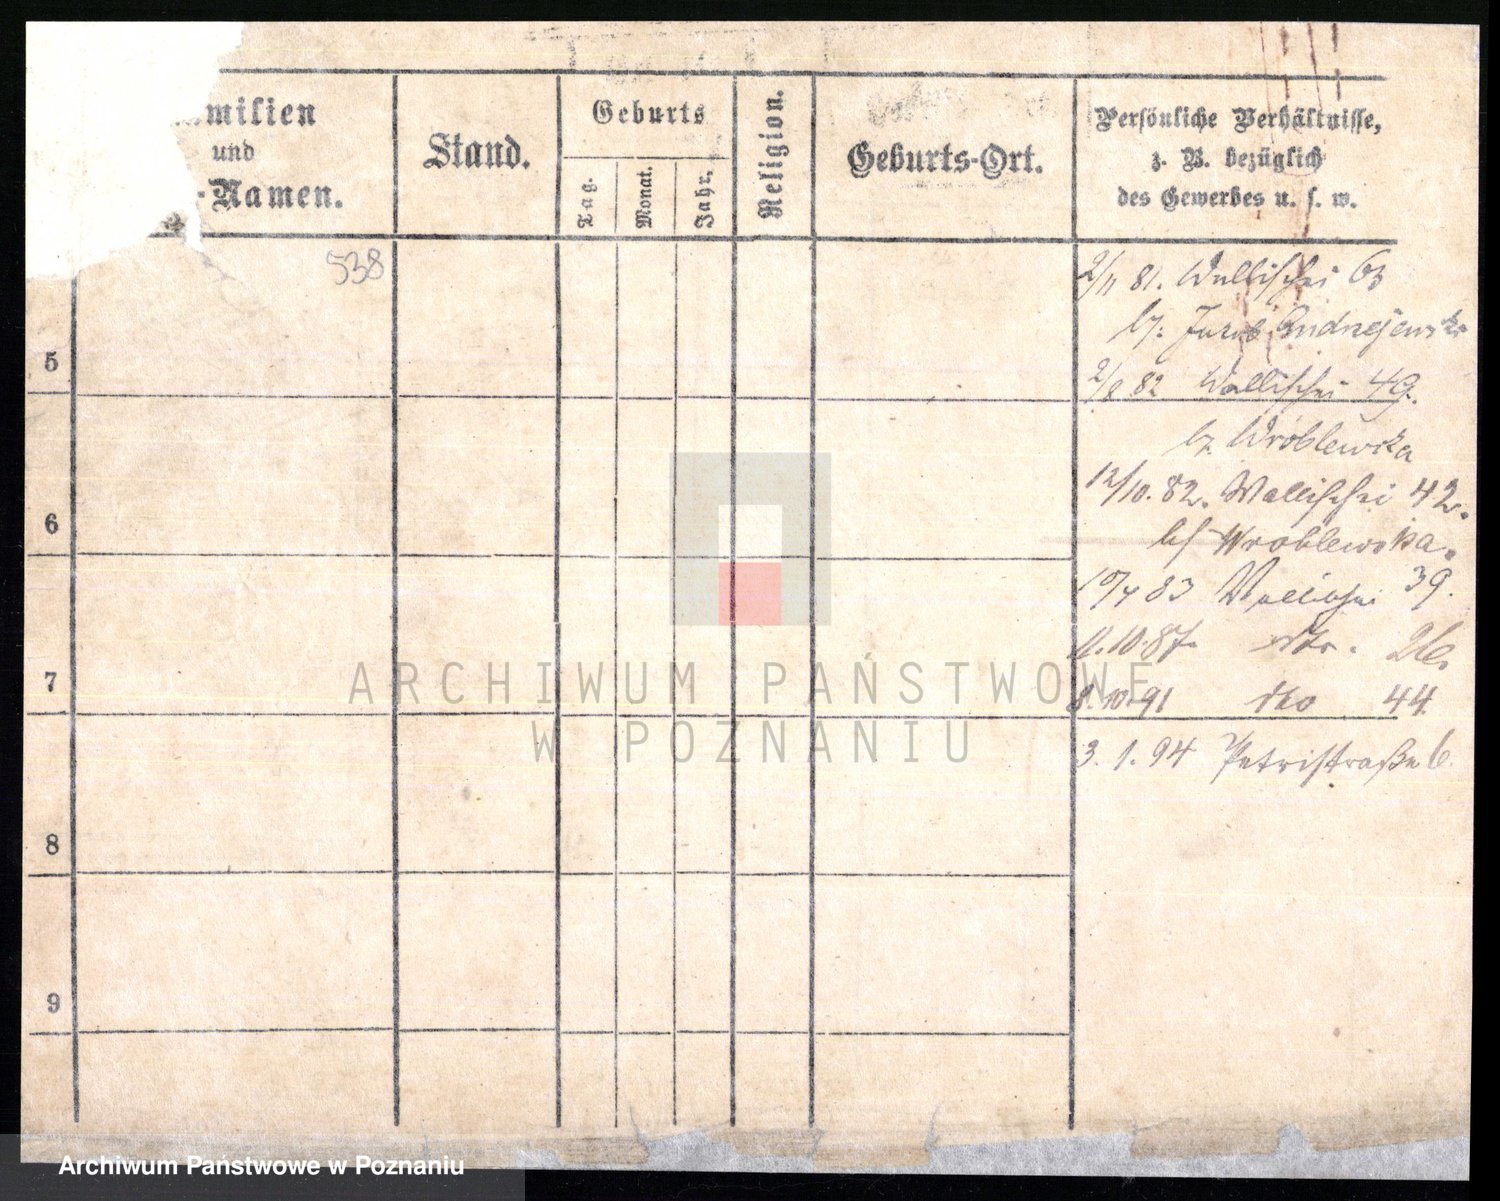 milien
und
-Namen.
Stand.
Geburts
Tag.
Monat.
Jahr.
Religion.
Geburts-Ort.
Persönliche Verhältnisse,
z. B. bezüglich
des Gewerbes u. s. w.
538
2/11 81. Wallischei 63
by: Andrzejewski
5
2/8 82 Wallischei 49.
bz Wroblewska
12/10. 82. Wallischei 42.
6
bei Wroblewska.
10/4 83 Wallischei 39.
11.10.87. dto. 26.
7
8.10.91 dto 44
3. 1. 94 Petristraße 6.
8
9
ARCHIWUM PAŃSTWOWE
W POZNANIU
Archiwum Państwowe w Poznaniu